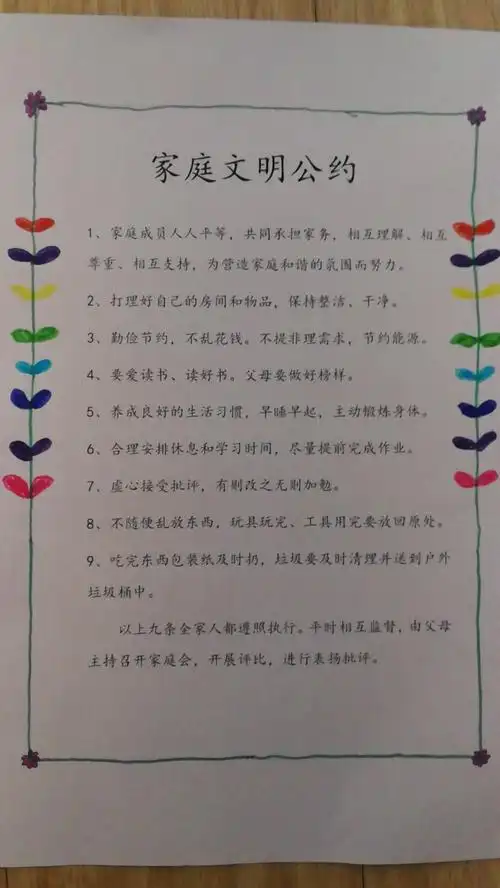 家庭文明公约
1、家庭成员人人平等，共同承担家务，相互理解、相互
尊重、相互支持，为营造家庭和谐的氛围而努力。
2、打理好自己的房间和物品，保持整洁、干净。
3、勤俭节约，不乱花钱。不提非理需求，节约能源。
4、要爱读书、读好书。父母要做好榜样。
5、养成良好的生活习惯，早睡早起，主动锻炼身体。
6、合理安排休息和学习时间，尽量提前完成作业。
7、虚心接受批评，有则改之无则加勉。
8、不随便乱放东西，玩具玩完、工具用完要放回原处。
9、吃完东西包装纸及时扔，垃圾要及时清理并送到户外
垃圾桶中。
以上九条全家人都遵照执行。平时相互监督，由父母
主持召开家庭会，开展评比，进行表扬批评。